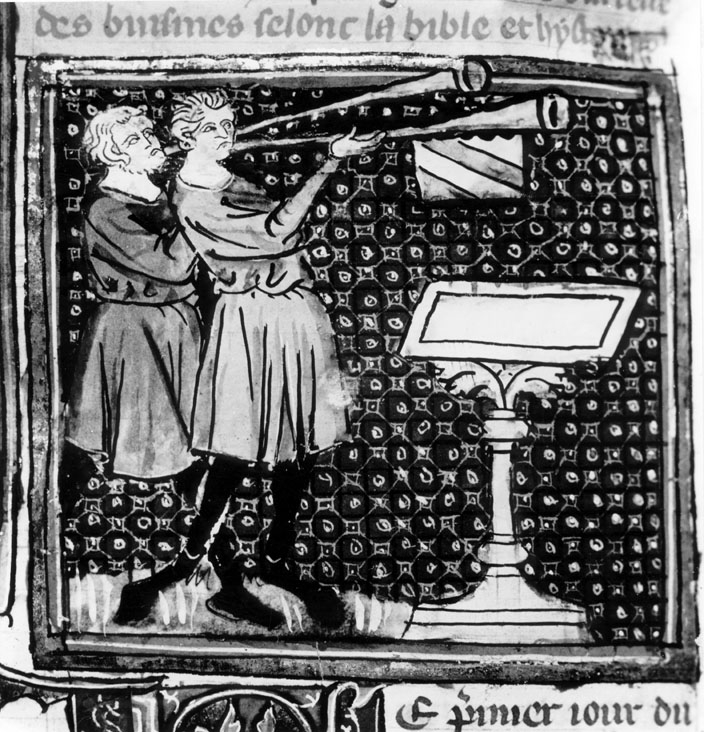 des buisines selonc la bible et hyst
E p̄mier iour du